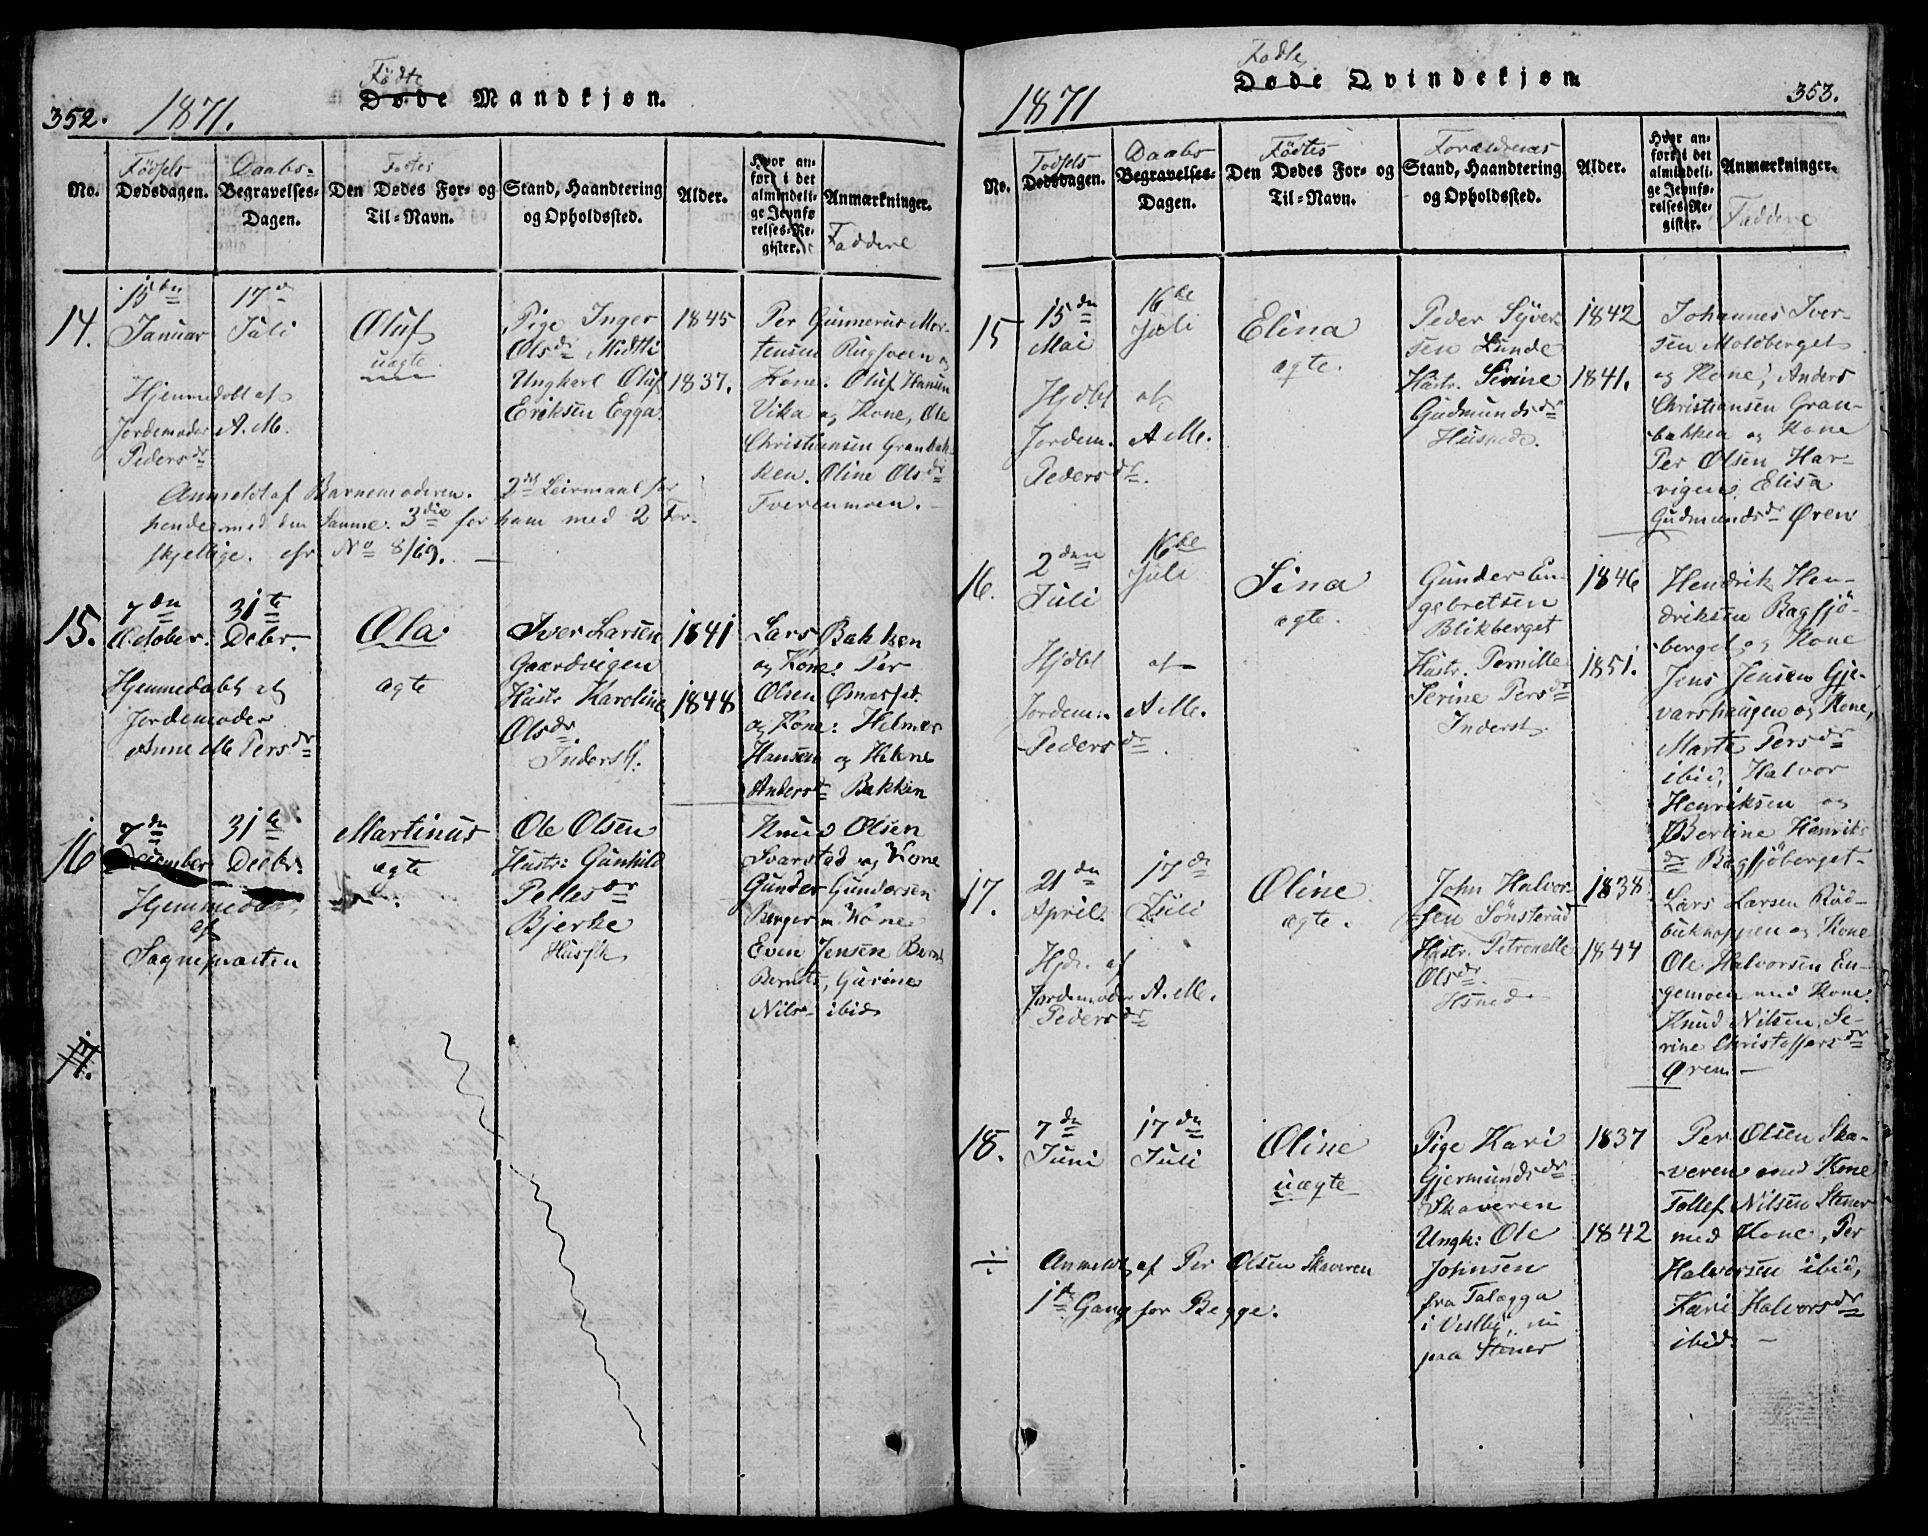 352. 1871. Fødte
Døde Mandkjøn.
No.
Fødsels
Dødsdagen.
Daabs-
Begravelses-
Dagen.
Fødtes
Den Dødes For- og
Til-Navn.
Stand, Haandtering
og Opholdssted.
Alder.
Hvor an-
ført i det
almindeli-
ge Jevnfø
relses-Re-
gister.
Anmærkninger.
Faddere
14.
15de
Januar
17de
Juli
Oluf
uægte
Pige Inger
Olsdr
Ungkarl Oluf
Eriksen Egga
1845
1837.
Per Gunnerus Mor-
tensen Rugsveen og
Kone. Oluf Hansen
Vika og Kone, Ole
Christiansen Granbak-
ken. Oline Olsdr
Tverenmoen.
Hjemmedøbt af
Jordemoder A. M.
Pedersdr
Anmeldt af Barnemoderen. 2det Leiermaal for
hende med den Samme. 3die for ham med 2 For-
skjellige. cfr No 8/69.
15.
7de
October.
31te
Decbr.
Ola
ægte
Iver Larsen
Gaardvigen
Hustr Karoline
Olsdr.
Inderst.
1841
1848
Lars Bakken
og Kone: Per
Olsen
og Kone: Helmer
Hansen og Helene
Andersdr Bakken
Hjemmedøbt af
Jordemoder
Anne M Persdr
16
7de
31te
Decbr.
Martinus
ægte
Ole Olsen
Hustr: Gunhild
Pellesdr
Bjerke
Knud Olsen
Svarstad og Kone
Gunder Gundersen
Berger m. Kone
Even Jensen
Berndts, Gurine
Nils- ibid
Hjemmedøbt
af
Sognepræsten
17.
1871 Fødte
Døde Qvindekjøn 353.
No.
Fødsels
Dødsdagen.
Daabs
Begravelses-
Dagen.
Fødtes
Den Dødes For- og
Til-Navn.
Forældrenes
Stand, Haandtering
og Opholdssted.
Alder.
Hvor an-
ført i det
almindeli-
ge Jevnfø-
relses-Re-
gister.
Anmærkninger.
Faddere
15
15de
Mai
16de
Juli
Elina
ægte.
Peder Syver
sen Lunde
Hustr. Serine
Gudmundsdr
1842
1841.
Johannes Iver-
sen Moldberget
og Kone, Anders
Christiansen Gran-
bakken og Kone
Per Olsen Har-
vigen, Elisa
Gudmundsdr Øren
Hjdbt af
Jordem. A M.
Pedersdr.
16.
2den
Juli
16de
Juli
Sina
ægte.
Gunder En-
gebretsen
Blikberget
Hustr. Pernille
Serine Persdr
Inderst
1846
1851.
Hendrik Hen-
driksen Bagsjö-
berget og Kone
Jens Jensen Gje-
varshaugen og Kone,
Marte Persdr
ibid, Halvor
Henriksen og
Bertine Hanriks
dr Bagsjöberget
Hjdbt af
Jordem. A M.
Pedersdr.
17.
21de
April
17de
Juli
Oline
ægte.
John Halvor-
sen Sönsteröd
Hustr. Petronelle
Olsdr.
1838
1844
Lars Larsen Röd-
buknappen og Kone
Ole Halvorsen En-
gemoen med Kone.
Knud Nilsen, Se-
rine Christoffersdr
Øren
Hjdr. af
Jordemoder A. M.
Pedersdr
18.
7de
Juni
17de
Juli
Oline
uægte
Pige Kari
Gjermundsdr
Skaveren
Ungk: Ole
Johnsen
fra Talægga
i Vestby, nu
paa Stener
1837
1842
Per Olsen Ska-
veren med Kone
Tollef Nilsen Stener
med Kone, Per
Halvorsen ibid,
Kari Halvorsdr
ibid.
÷ Anmeldt af Per Olsen Skaveren
1ste Gang for Begge.